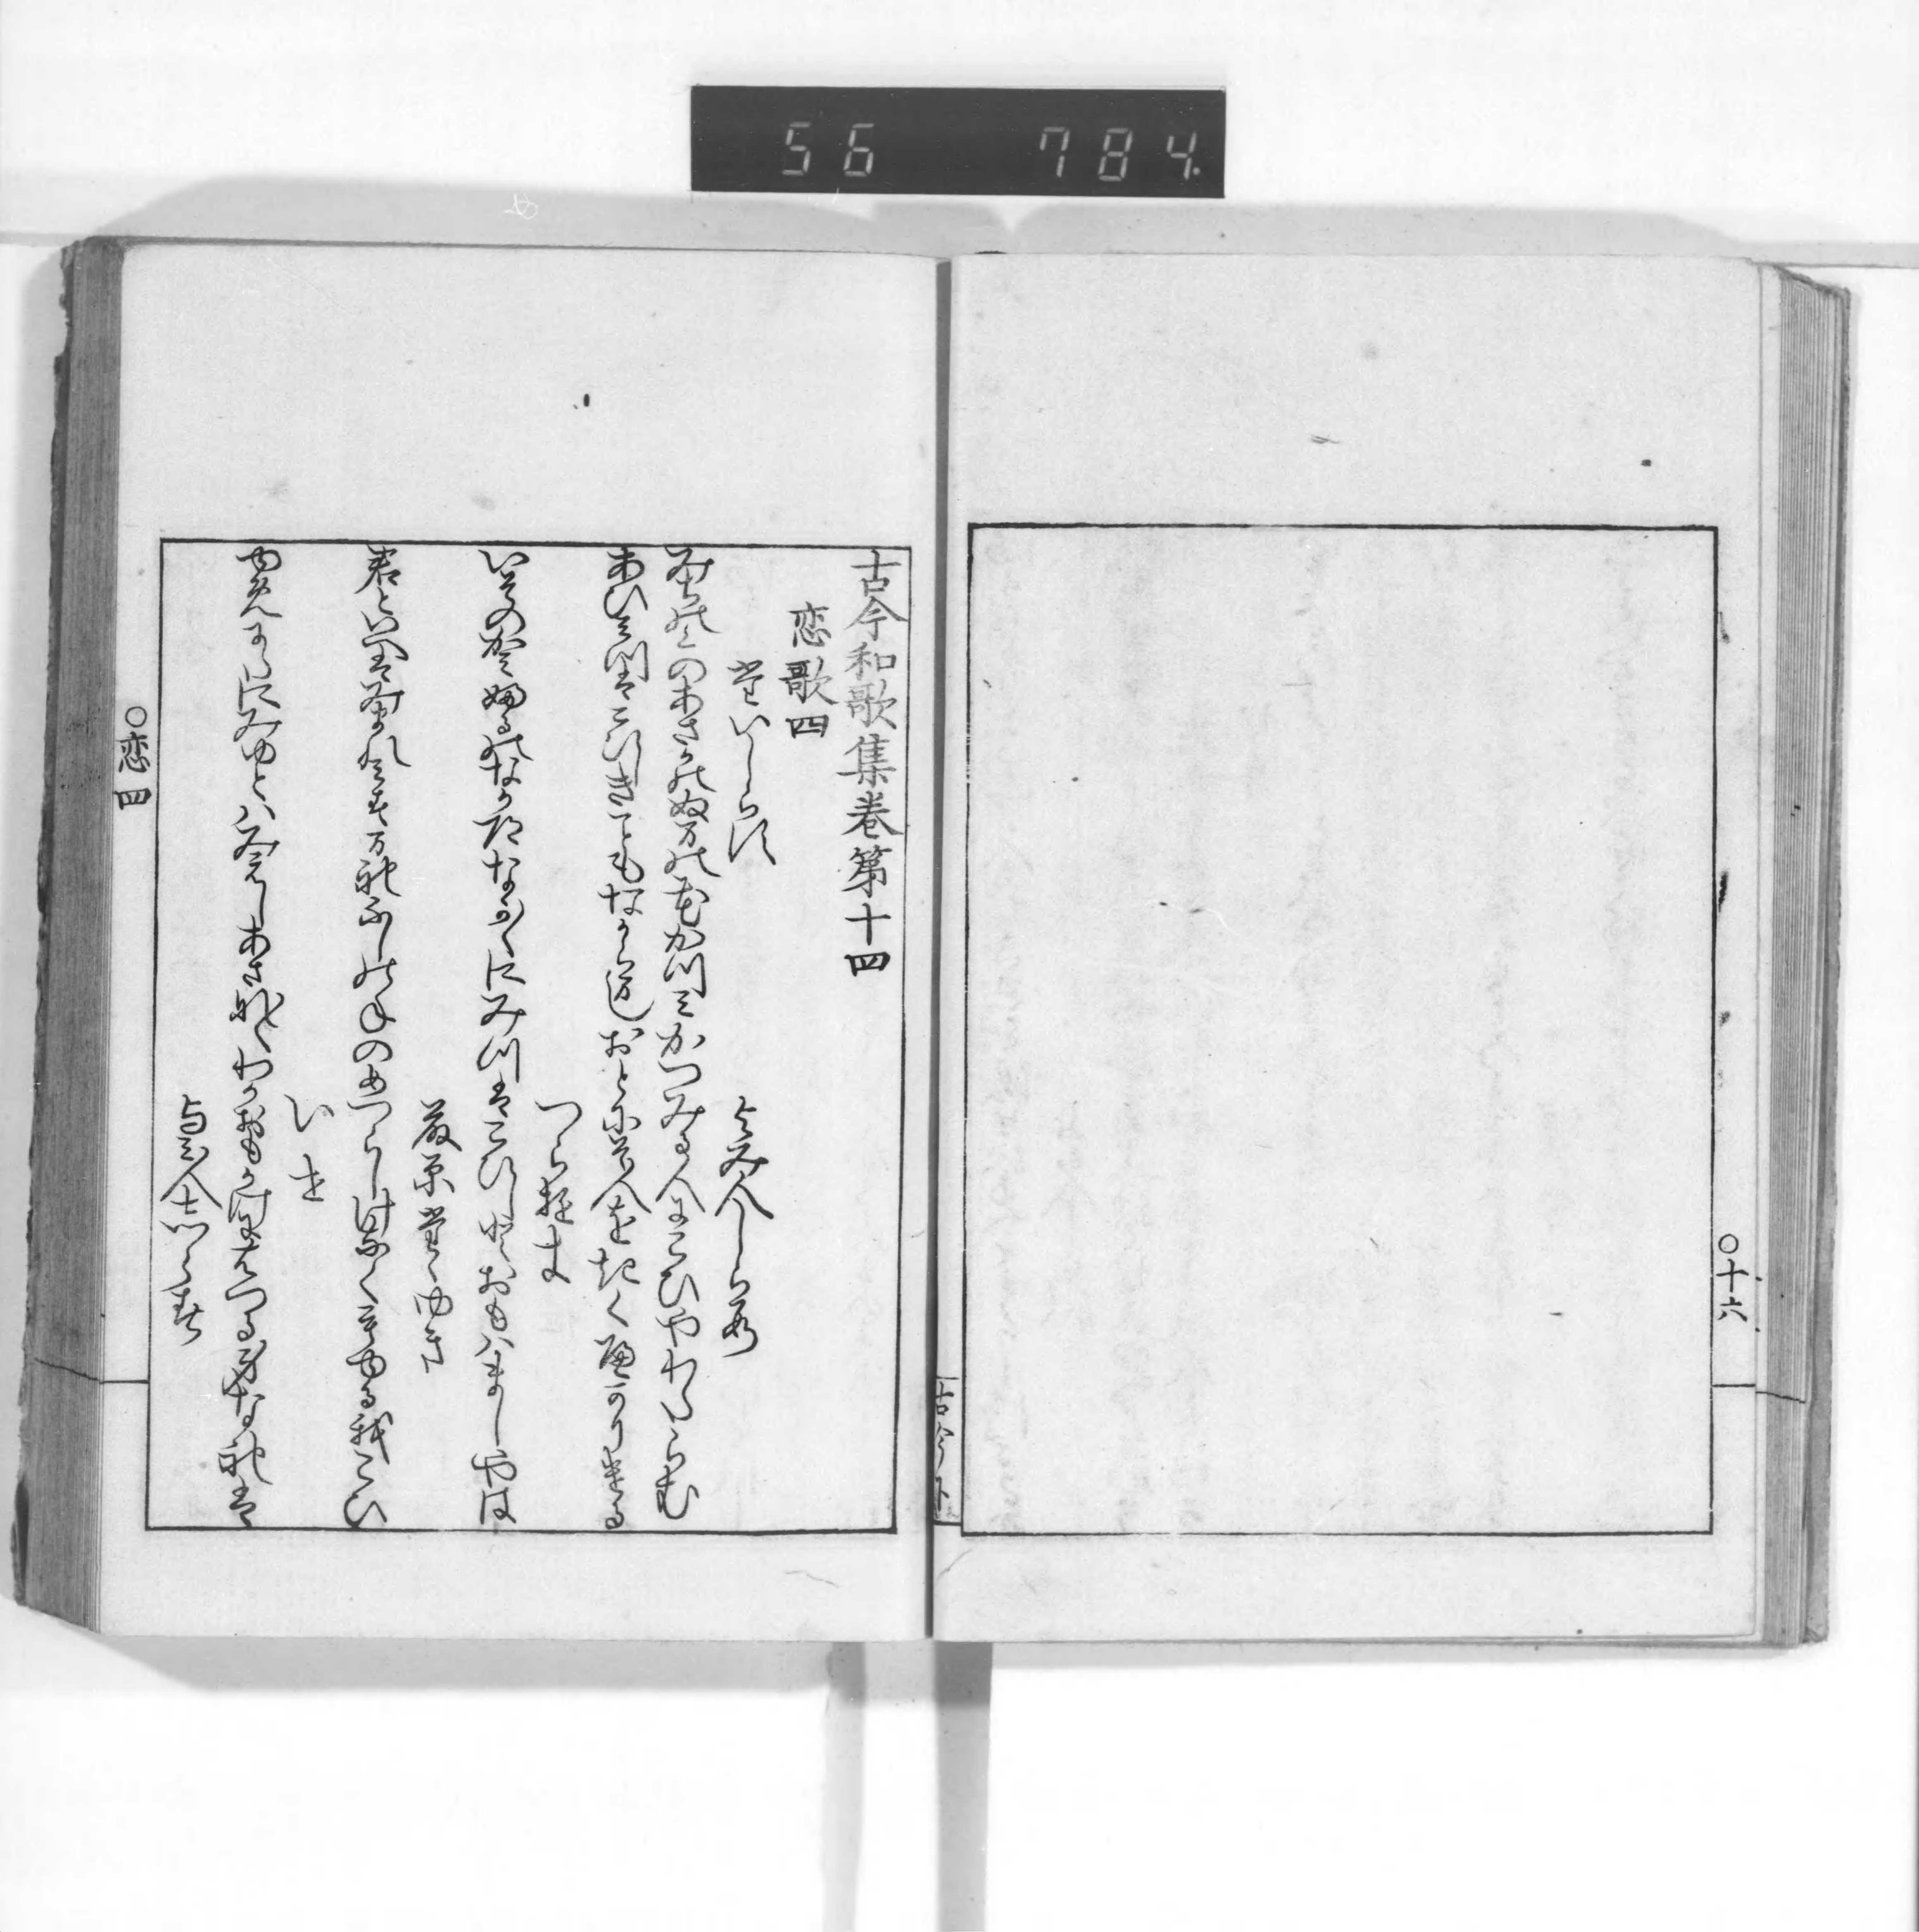 56 784.
○十六
古今和歌集巻第十四
恋歌四
たいしらす
よみ人しらす
みちのくのあさかのぬまの花かつみかつみる人にこひやわたらむ
あひみすはこひしきこともなからましおとにそ人をきくへかりける
つらゆき
いその神ふるのなか道なか〳〵にみすはこひしとおもはましやは
藤原たゝゆき
君といへはみまれみすまれふしのねのめつらしけなくもゆる我こひ
いせ
ゆめにたにみゆとはみえしあさな〳〵わかおもかけにはつる身なれは
よみ人しらす
○恋四